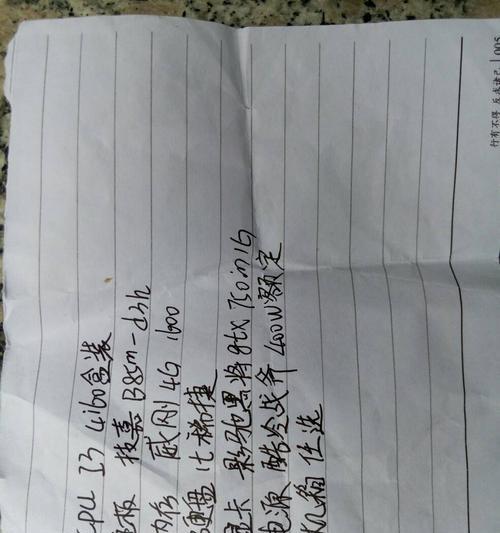 CPU I3 4160盒装
主板 技嘉 B85m-d3h
内存 威刚 4G 1600
硬盘 1t 希捷
显卡 影驰黑将gtx 750 1G
电源 酷冷战斧 400W额定
机箱 任选
行有不得 反求诸己